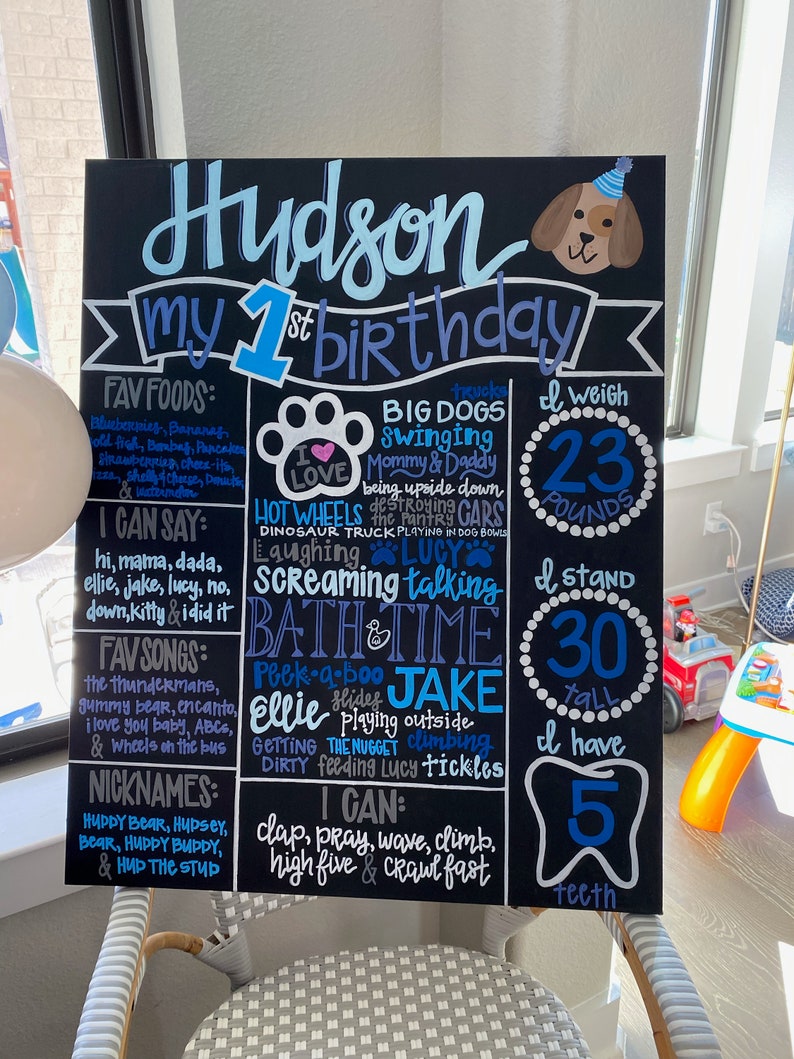 Hudson
my 1st birthday
FAV FOODS:
Blueberries, Bananas,
Gold fish, Bombay, Pancakes
Strawberries, cheez-its,
Pizza, shells & cheese, Donuts,
& watermelon
I CAN SAY:
hi, mama, dada,
ellie, jake, lucy, no,
down, kitty & i did it
FAV SONGS:
the thundermans,
gummy bear, encanto,
i love you baby, ABCs,
& wheels on the bus
NICKNAMES:
HUPPY BEAR, HUDSEY,
BEAR, HUPPY BUPPY,
& HUD THE STUD
I
LOVE
trucks
BIG DOGS
Swinging
Mommy & Daddy
being upside down
HOT WHEELS destroying the pantry CARS
DINOSAUR TRUCK PLAYING IN DOG BOWLS
Laughing LUCY
SCREAMING talking
BATH TIME
Peek-a-boo
slides JAKE
Ellie playing outside
GETTING DIRTY THE NUGGET climbing
feeding Lucy tickles
I CAN:
clap, pray, wave, climb,
high five & crawl fast
I WEIGH
23
POUNDS
I STAND
30
tall
I have
5
teeth